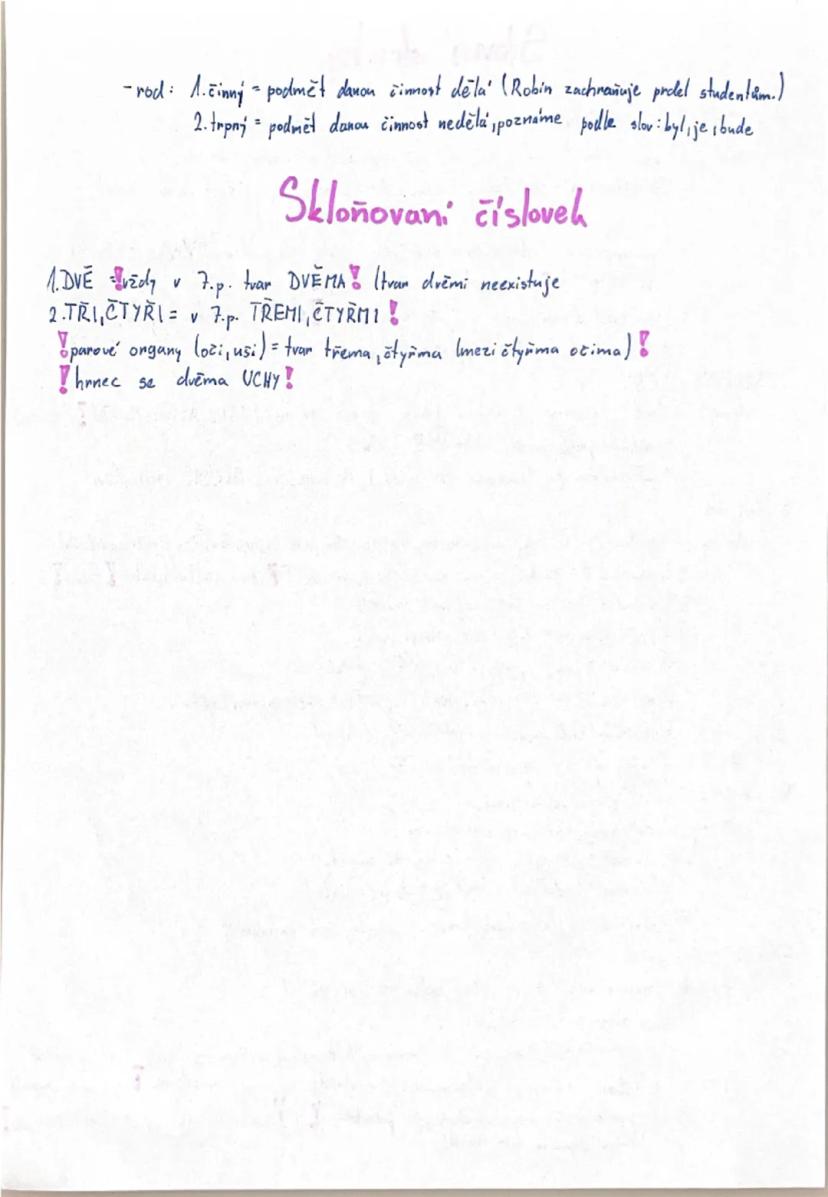 -rod: 1.činný = podmět danou činnost dělá (Robin zachraňuje prdel studentům.)
2.trpný = podmět danou činnost nedělá, poznáme podle slov: byl, je, bude
Skloňovaní číslovek
1.DVĚ =!vždy v 7.p. tvar DVĚMA! (tvar dvěmi neexistuje
2.TŘI, ČTYŘI = v 7.p. TŘEMI, ČTYŘMI!
!párové orgány (oči, uši) = tvar třema, čtyřma (mezi čtyřma očima)!
!hrnec se dvěma UCHY!